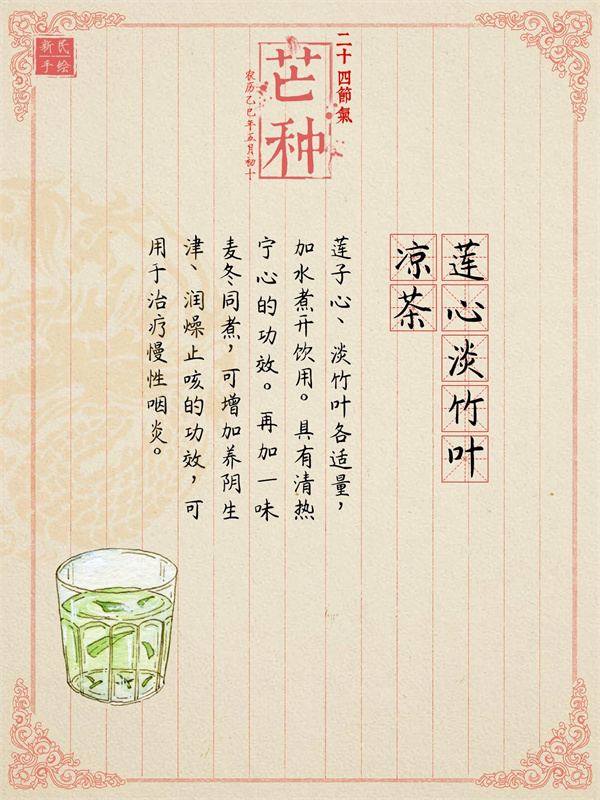 新民
手绘
二十四節氣
芒种
农历乙巳年五月初十
莲心淡竹叶
凉茶
莲子心、淡竹叶各适量，
加水煮开饮用。具有清热
宁心的功效。再加一味
麦冬同煮，可增加养阴生
津、润燥止咳的功效，可
用于治疗慢性咽炎。